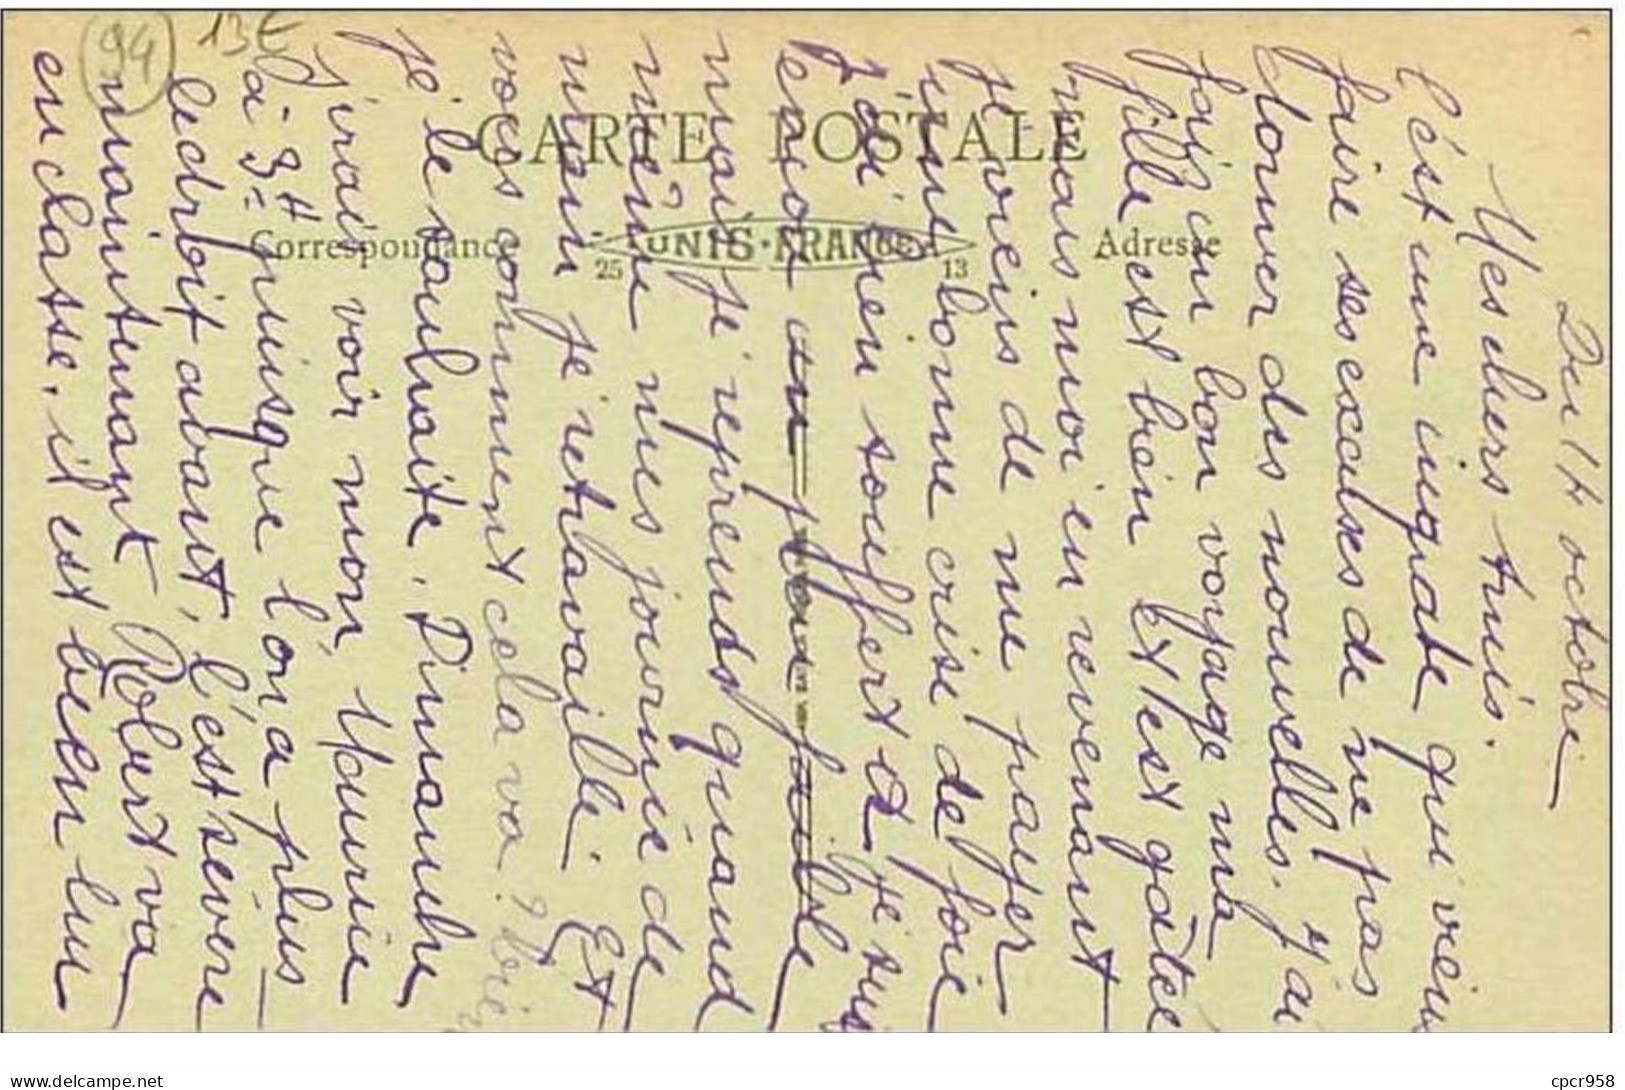 94
13€
CARTE POSTALE
Correspondance
UNIS-FRANCE
25
13
Adresse
Du 14 octobre
Mes chers amis.
C'est une ingrate qui vien
faire ses excuses de ne pas
donner des nouvelles. J'ai
fait un bon voyage ma
fille est bien et est gâtée
mais moi en revenant
je viens de me payer
une bonne crise de foie
j'ai bien souffert et je suis
encore faible
mais je reprends quand
même mes journée de
main je retravaille. Et
vous comment cela va? bien
je le souhaite. Dimanche
j'irais voir mon Maurice
à 3H puisque l'on a plus
le droit avant, c'est sévère
maintenant Robert va
en classe. il est bien lun
www.delcampe.net
cpcr958